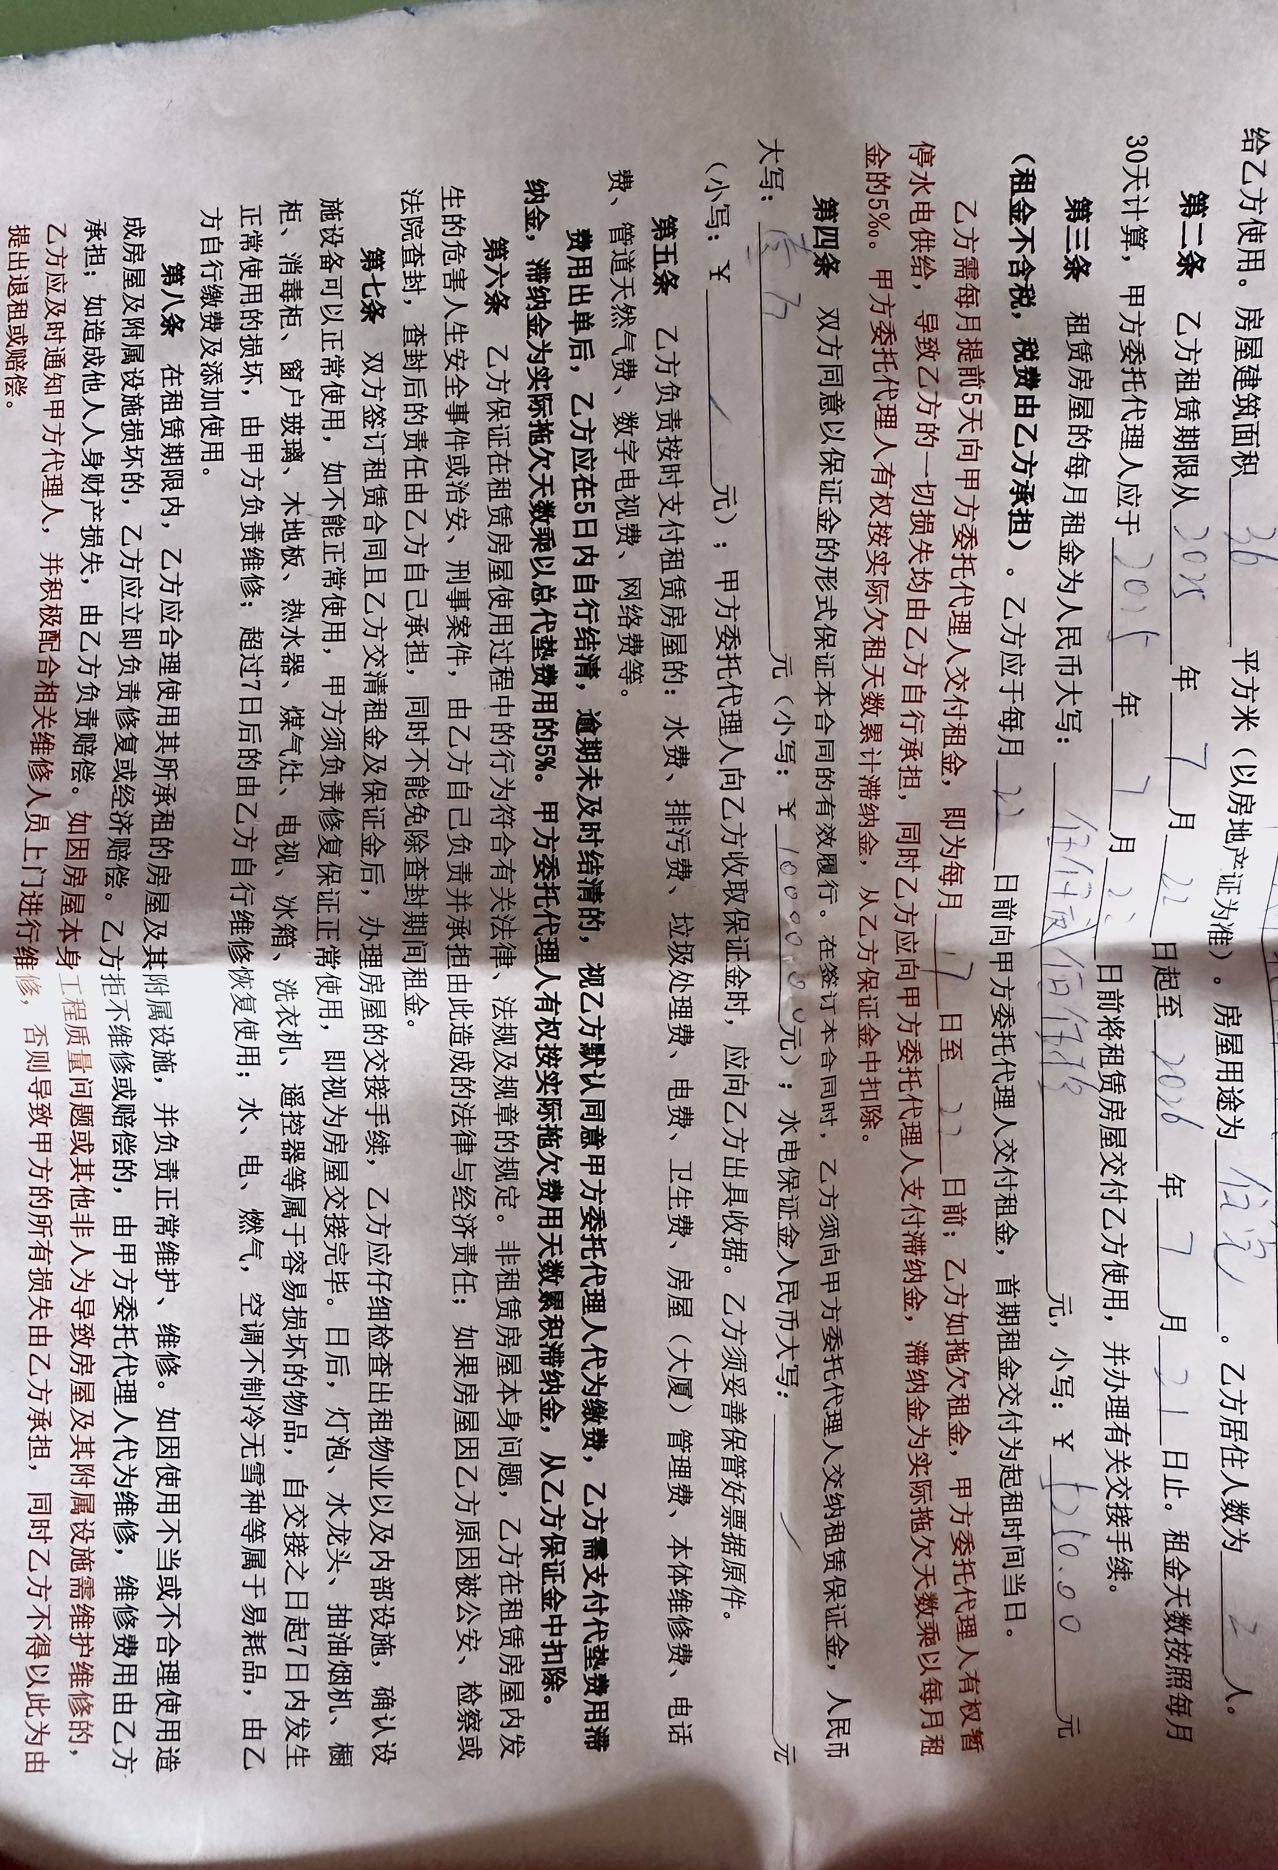 给乙方使用。房屋建筑面积 36 平方米（以房地产证为准）。房屋用途为 住宅 。乙方居住人数为 2 人。
第二条 乙方租赁期限从 2025 年 7 月 22 日起至 2026 年 7 月 21 日止。租金天数按照每月
30天计算，甲方委托代理人应于 2025 年 7 月 22 日前将租赁房屋交付乙方使用，并办理有关交接手续。
第三条 租赁房屋的每月租金为人民币大写： 元，小写：¥ 元
（租金不含税，税费由乙方承担）。乙方应于每月 22 日前向甲方委托代理人交付租金，首期租金交付为起租时间当日。
乙方需每月提前5天向甲方委托代理人交付租金，即为每月 17 日至 22 日前；乙方如拖欠租金，甲方委托代理人有权暂
停水电供给，导致乙方的一切损失均由乙方自行承担，同时乙方应向甲方委托代理人支付滞纳金，滞纳金为实际拖欠天数乘以每月租
金的5‰。甲方委托代理人有权按实际欠租天数累计滞纳金，从乙方保证金中扣除。
第四条 双方同意以保证金的形式保证本合同的有效履行。在签订本合同时，乙方须向甲方委托代理人交纳租赁保证金，人民币
大写： 元（小写：¥ 10000.00 元）；水电保证金人民币大写： / 元
（小写：¥ / 元）；甲方委托代理人向乙方收取保证金时，应向乙方出具收据。乙方须妥善保管好票据原件。
第五条 乙方负责按时支付租赁房屋的：水费、排污费、垃圾处理费、电费、卫生费、房屋（大厦）管理费、本体维修费、电话
费、管道天然气费、数字电视费、网络费等。
费用出单后，乙方应在5日内自行结清，逾期未及时结清的，视乙方默认同意甲方委托代理人代为缴费，乙方需支付代垫费用滞
纳金，滞纳金为实际拖欠天数乘以总代垫费用的5%。甲方委托代理人有权按实际拖欠费用天数累积滞纳金，从乙方保证金中扣除。
第六条 乙方保证在租赁房屋使用过程中的行为符合有关法律、法规及规章的规定。非租赁房屋本身问题，乙方在租赁房屋内发
生的危害人生安全事件或治安、刑事案件，由乙方自己负责并承担由此造成的法律与经济责任；如果房屋因乙方原因被公安、检察或
法院查封，查封后的责任由乙方自己承担，同时不能免除查封期间租金。
第七条 双方签订租赁合同且乙方交清租金及保证金后，办理房屋的交接手续，乙方应仔细检查出租物业以及内部设施，确认设
施设备可以正常使用，如不能正常使用，甲方须负责修复保证正常使用，即视为房屋交接完毕。日后，灯泡、水龙头、抽油烟机、橱
柜、消毒柜、窗户玻璃、木地板、热水器、煤气灶、电视、冰箱、洗衣机、遥控器等属于容易损坏的物品，自交接之日起7日内发生
正常使用的损坏，由甲方负责维修；超过7日后的由乙方自行维修恢复使用；水、电、燃气，空调不制冷无雪种等属于易耗品，由乙
方自行缴费及添加使用。
第八条 在租赁期限内，乙方应合理使用其所承租的房屋及其附属设施，并负责正常维护、维修。如因使用不当或不合理使用造
成房屋及附属设施损坏的，乙方应立即负责修复或经济赔偿。乙方拒不维修或赔偿的，由甲方委托代理人代为维修，维修费用由乙方
承担；如造成他人人身财产损失，由乙方负责赔偿。如因房屋本身工程质量问题或其他非人为导致房屋及其附属设施需维护维修的，
乙方应及时通知甲方代理人，并积极配合相关维修人员上门进行维修，否则导致甲方的所有损失由乙方承担，同时乙方不得以此为由
提出退租或赔偿。